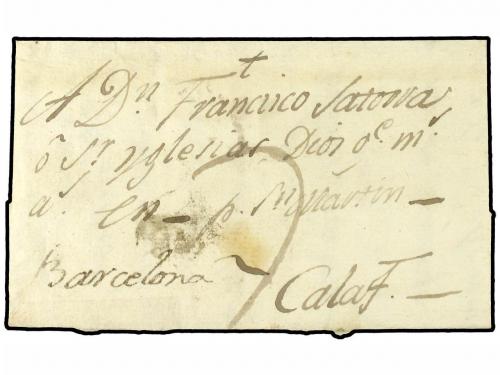 A Dn Francisco Satorra
ô Sr Yglesias Dios ge. m.
a. en p. Sn Martin
Barcelona
Calaf.